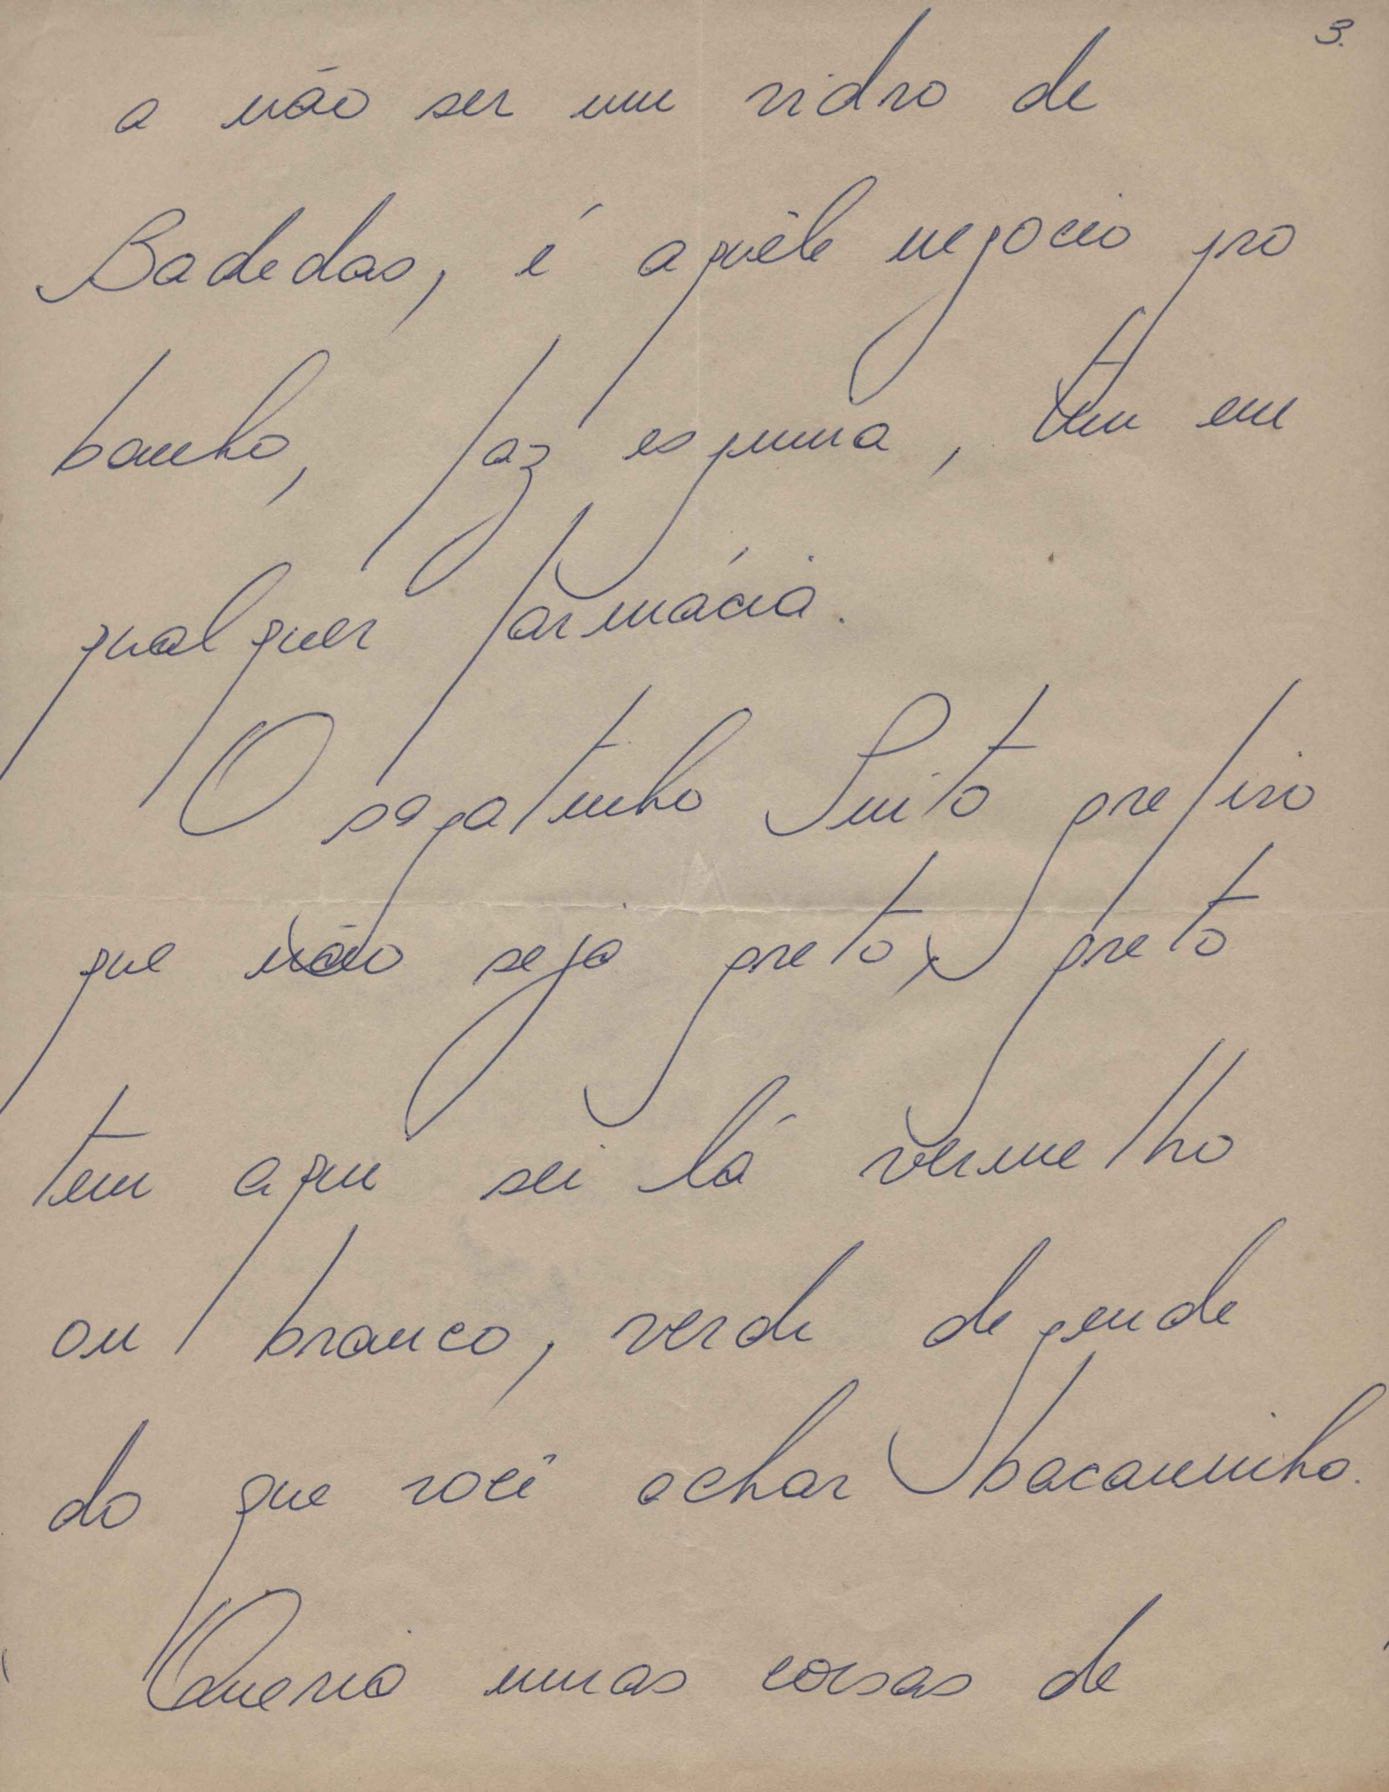 3.
a não ser um vidro de
Badedas, é aquêle negocio pro
banho, faz espuma, tem em
qualquer farmácia.
O sapatinho Smito prefiro
que não seja preto, preto
tem aqui sei lá vermelho
ou branco, verde depende
do que você achar bacaninho.
Queria umas coisas de